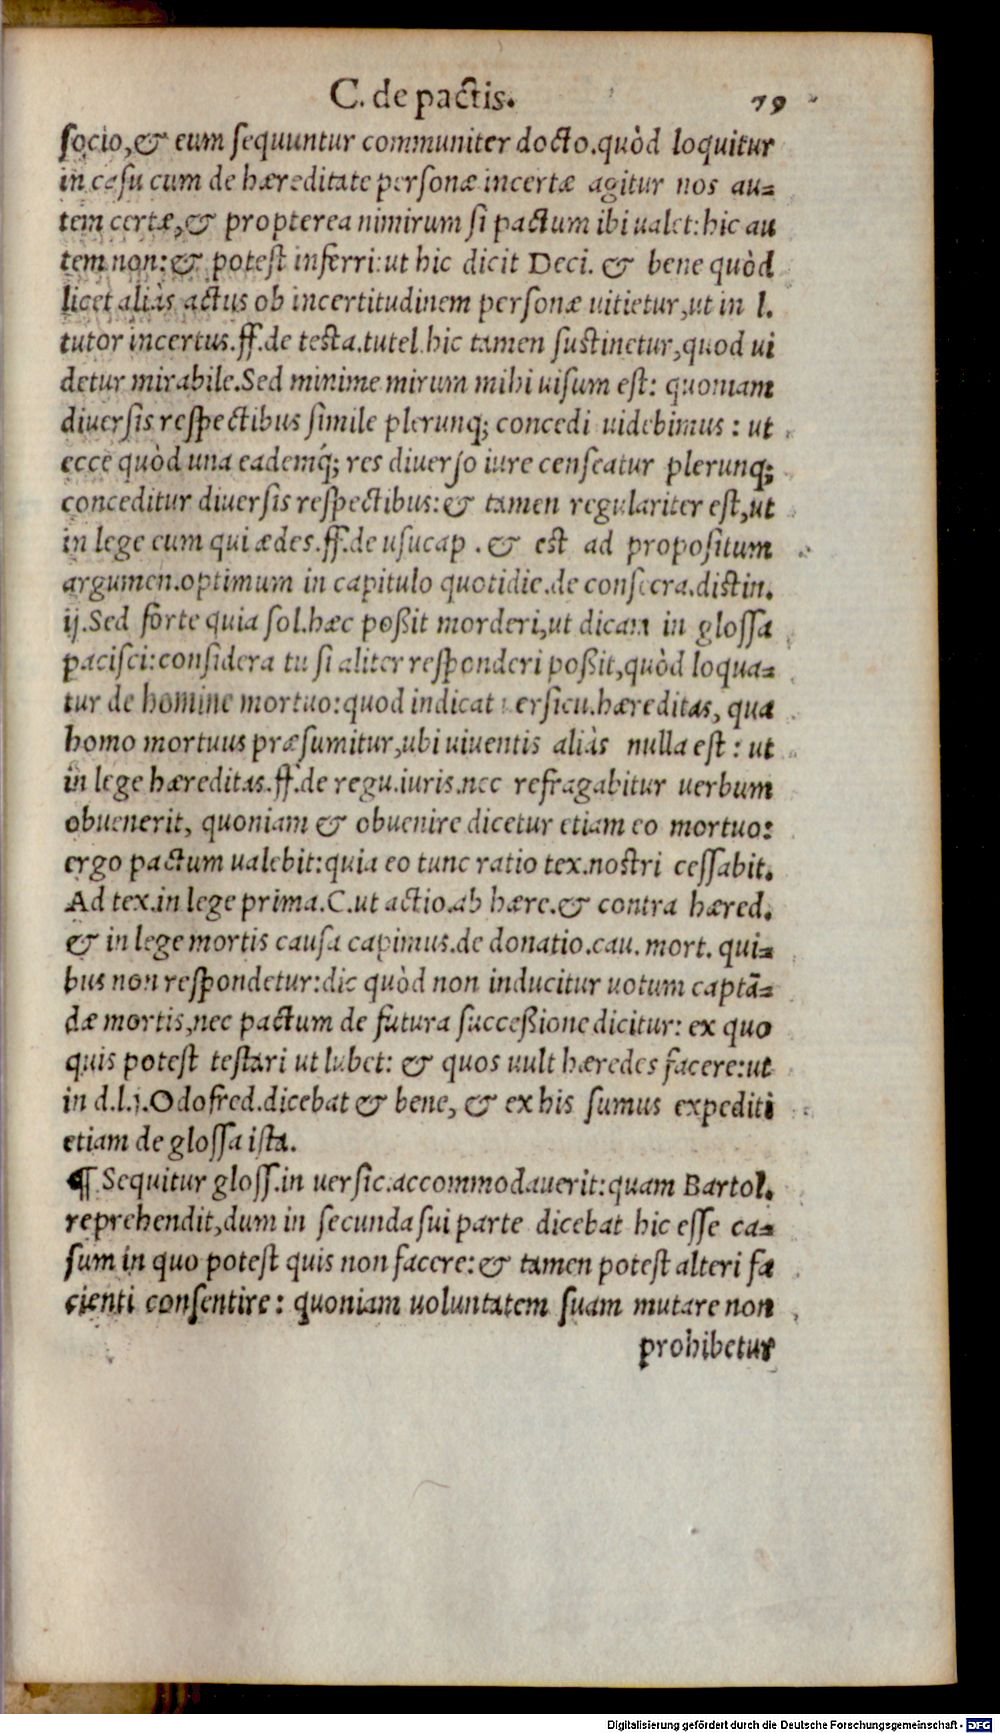 C. de pactis. 79
socio, & eum sequuntur communiter docto. quòd loquitur
in casu cum de hæreditate personæ incertæ agitur nos au=
tem certæ, & propterea nimirum si pactum ibi ualet: hic au
tem non: & potest inferri: ut hic dicit Deci. & bene quòd
licet aliàs actus ob incertitudinem personæ uitietur, ut in l.
tutor incertus. ff. de testa. tutel. hic tamen sustinetur, quod ui
detur mirabile. Sed minime mirum mihi uisum est: quoniam
diuersis respectibus simile plerunq; concedi uidebimus: ut
ecce quòd una eademq́; res diuerso iure censeatur plerunq;
conceditur diuersis respectibus: & tamen regulariter est, ut
in lege eum qui ædes. ff. de usucap. & est ad propositum
argumen. optimum in capitulo quotidie. de consecra. distin.
ij. Sed forte quia sol. hæc poßit morderi, ut dicam in glossa
pacisci: considera tu si aliter responderi poßit, quòd loqua=
tur de homine mortuo: quod indicat uersicu. hæreditas, qua
homo mortuus præsumitur, ubi uiuentis aliàs nulla est: ut
in lege hæreditas. ff. de regu. iuris. nec refragabitur uerbum
obuenerit, quoniam & obuenire dicetur etiam eo mortuo:
ergo pactum ualebit: quia eo tunc ratio tex. nostri cessabit.
Ad tex. in lege prima. C. ut actio. ab hære. & contra hæred.
& in lege mortis causa capimus. de donatio. cau. mort. qui=
bus non respondetur: dic quòd non inducitur uotum captã=
dæ mortis, nec pactum de futura succeßione dicitur: ex quo
quis potest testari ut lubet: & quos uult hæredes facere: ut
in d. l. j. Odofred. dicebat & bene, & ex his sumus expediti
etiam de glossa ista.
¶ Sequitur gloss. in uersic. accommodauerit: quam Bartol.
reprehendit, dum in secunda sui parte dicebat hic esse ca=
sum in quo potest quis non facere: & tamen potest alteri fa
cienti consentire: quoniam uoluntatem suam mutare non
prohibetur
Digitalisierung gefördert durch die Deutsche Forschungsgemeinschaft - DFG